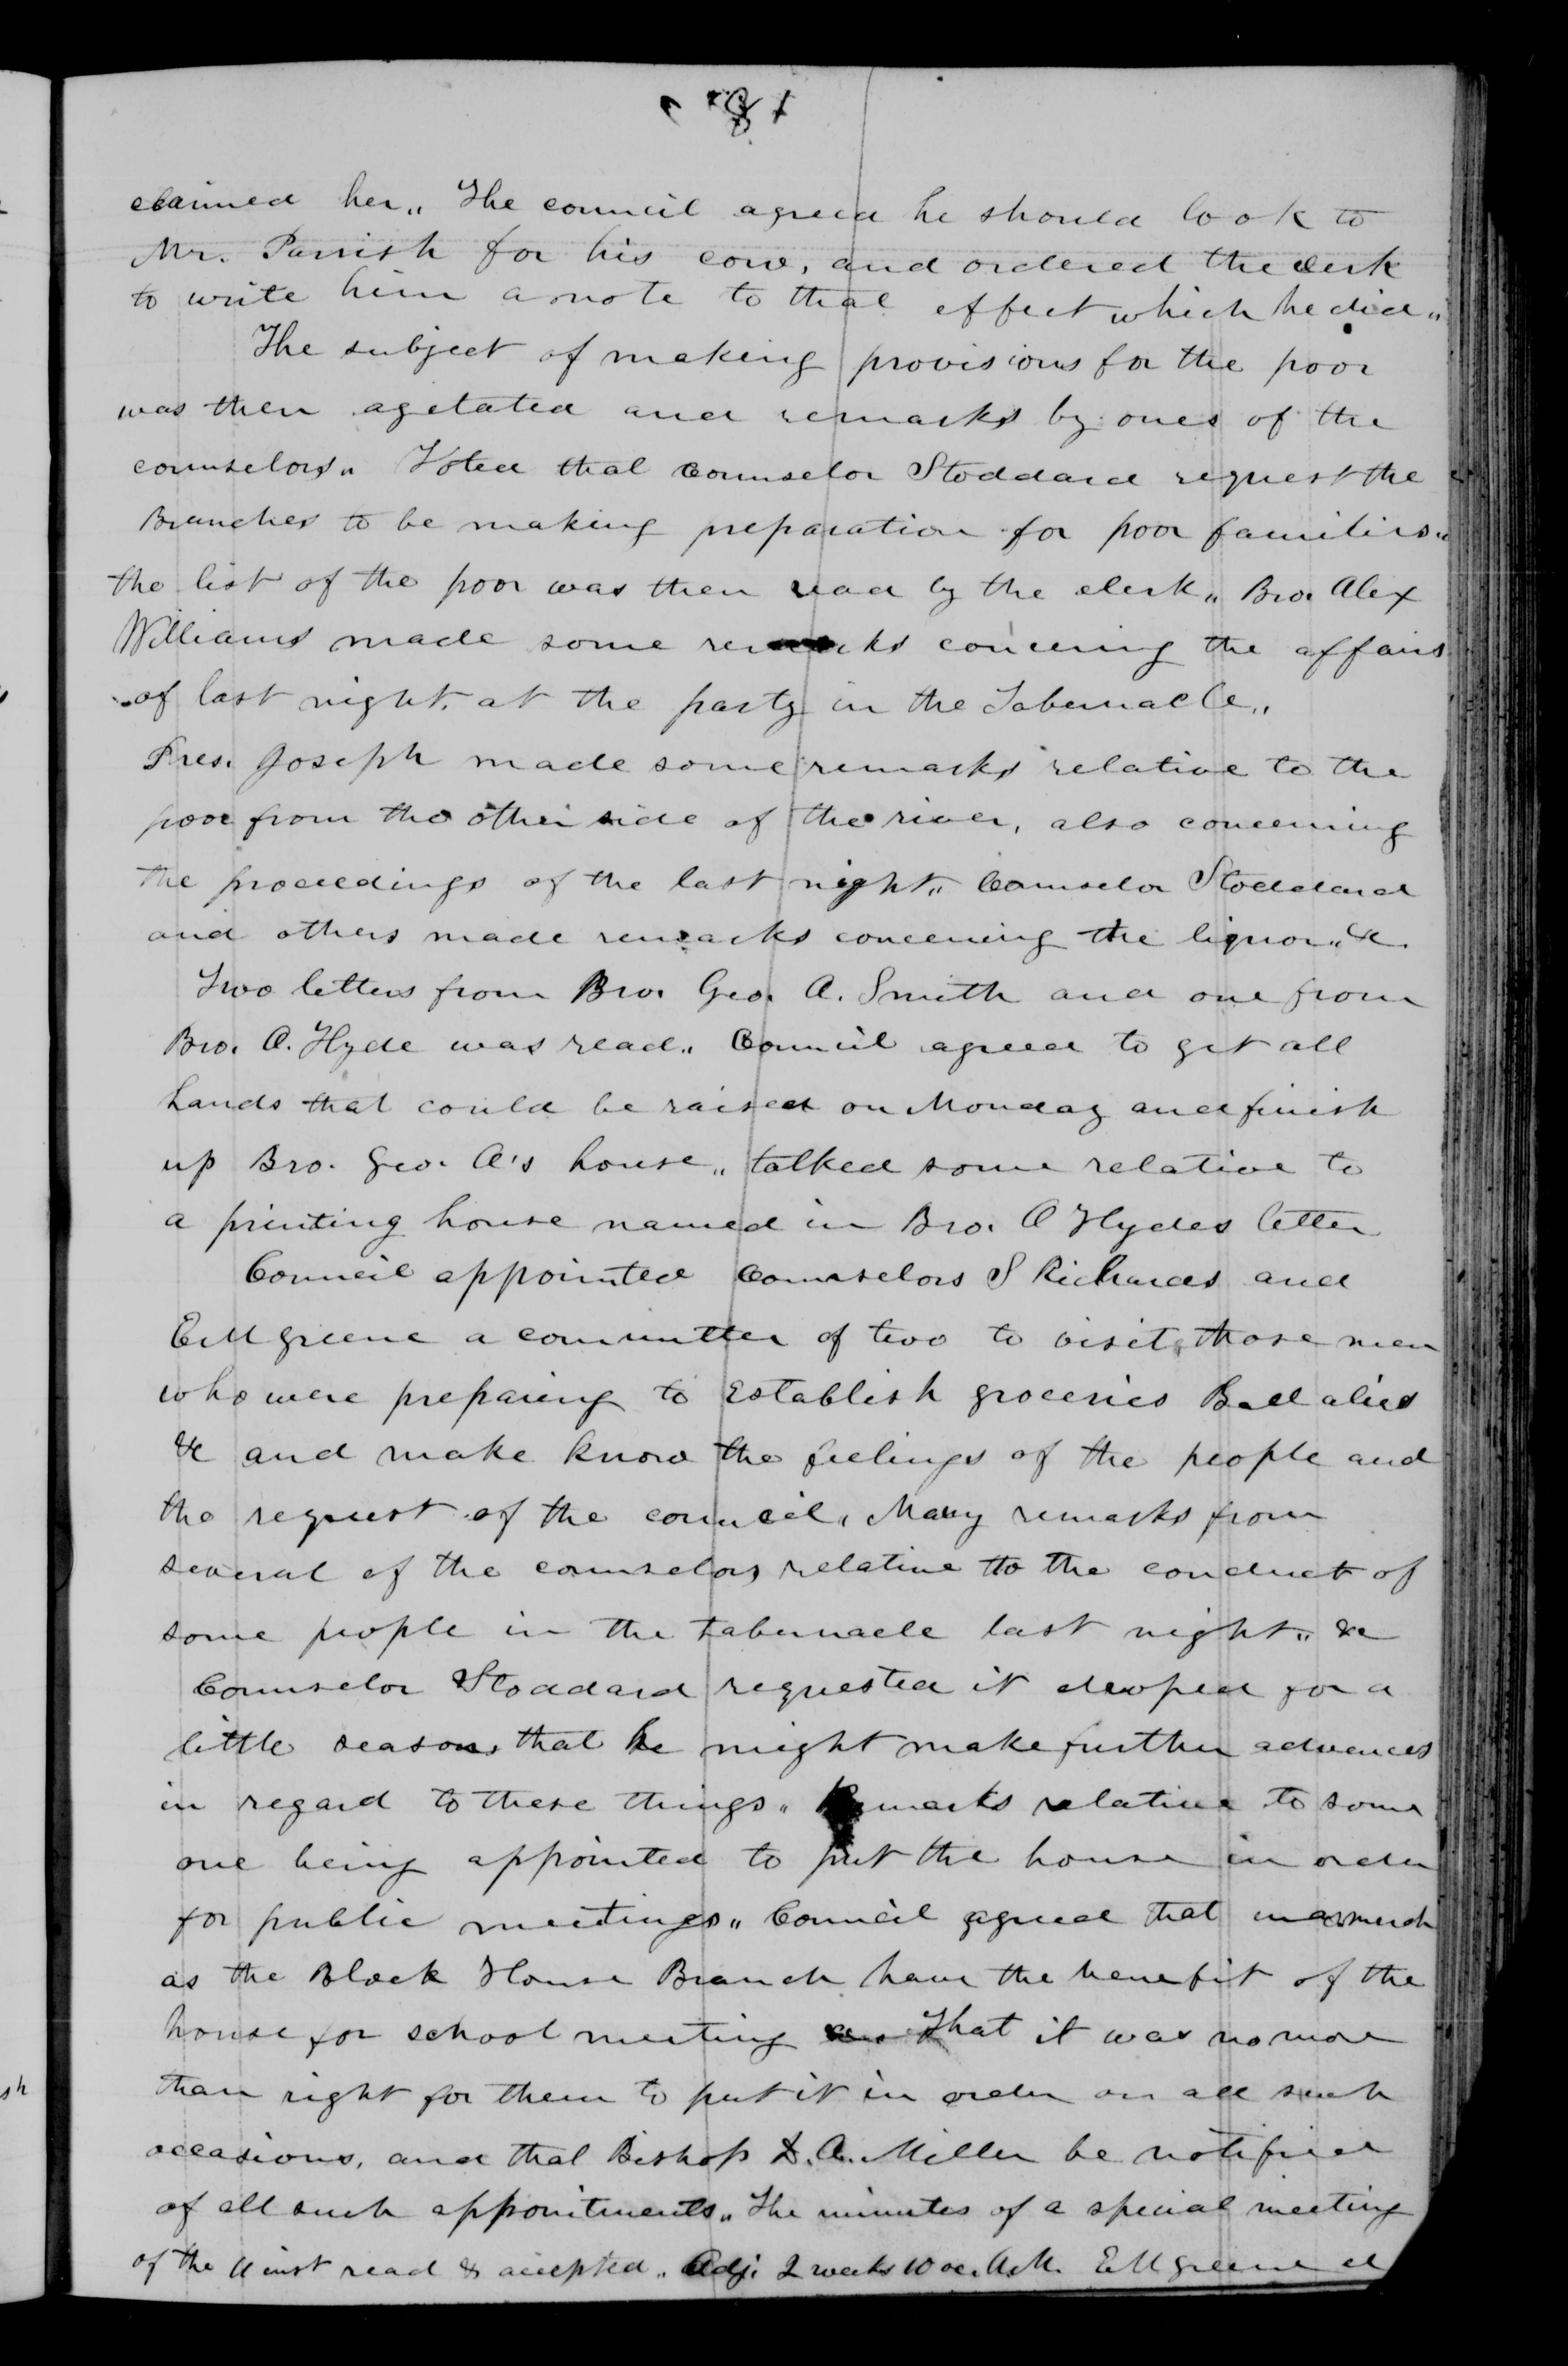 claimed her,, The council agreed he should look to
Mr. Parrish for his cow, and ordered the clerk
to write him a note to that effect which he did,,
The subject of making provisions for the poor
was then agetated and remarks by ones of the
counselors,, Voted that Counselor Stoddard request the
Branches to be making preparation for poor families,,
the list of the poor was then read by the clerk,, Bro. Alex
Williams made some remarks concening the affairs
of last night, at the party in the Tabernacle,,
Pres. Joseph made some remarks relative to the
poor from the other side of the river, also concerning
the proceedings of the last night,, Counselor Stoddard
and others made remarks concerning the liquor,, &c.
Two letters from Bro. Geo. A. Smith and one from
Bro. O. Hyde was read,, Council agreed to get all
hands that could be raised on Monday and finish
up Bro. Geo. A's house,, talked some relative to
a printing house named in Bro. O Hydes letter
Council appointed Counselors S Richards and
E M Greene a committee of two to visit those men
who were preparing to establish groceries Ball alies
&c and make know the feelings of the people and
the request of the council, Many remarks from
several of the counselors relative to the conduct of
some people in the tabernacle last night,, &c
Counselor Stoddard requested it droped for a
little season, that he might make further advances
in regard to these things,, Remarks relative to some
one being appointed to put the house in order
for public meetings,, Council agreed that inasmuch
as the Block House Branch have the benefit of the
house for school meeting That it was no more
than right for them to put it in order on all such
occasions, and that Bishop D. A. Miller be notified
of all such appointments,, The minutes of a special meeting
of the 11 inst read & accepted,, Adj. 2 weeks 10 oc. A.M. E M Greene cl